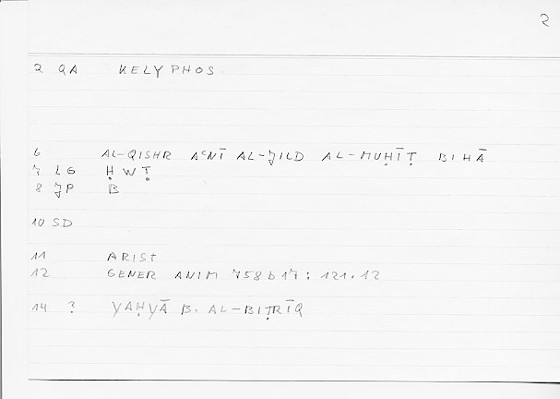 2
2 QA KELYPHOS
6 AL-QISHR AʿNĪ AL-JILD AL-MUḤĪṬ BIHĀ
7 LG ḤWṬ
8 JP B
10 SD
11 ARIST
12 GENER ANIM 758b17; 121.12
14 ? YAḤYĀ B. AL-BIṬRĪQ